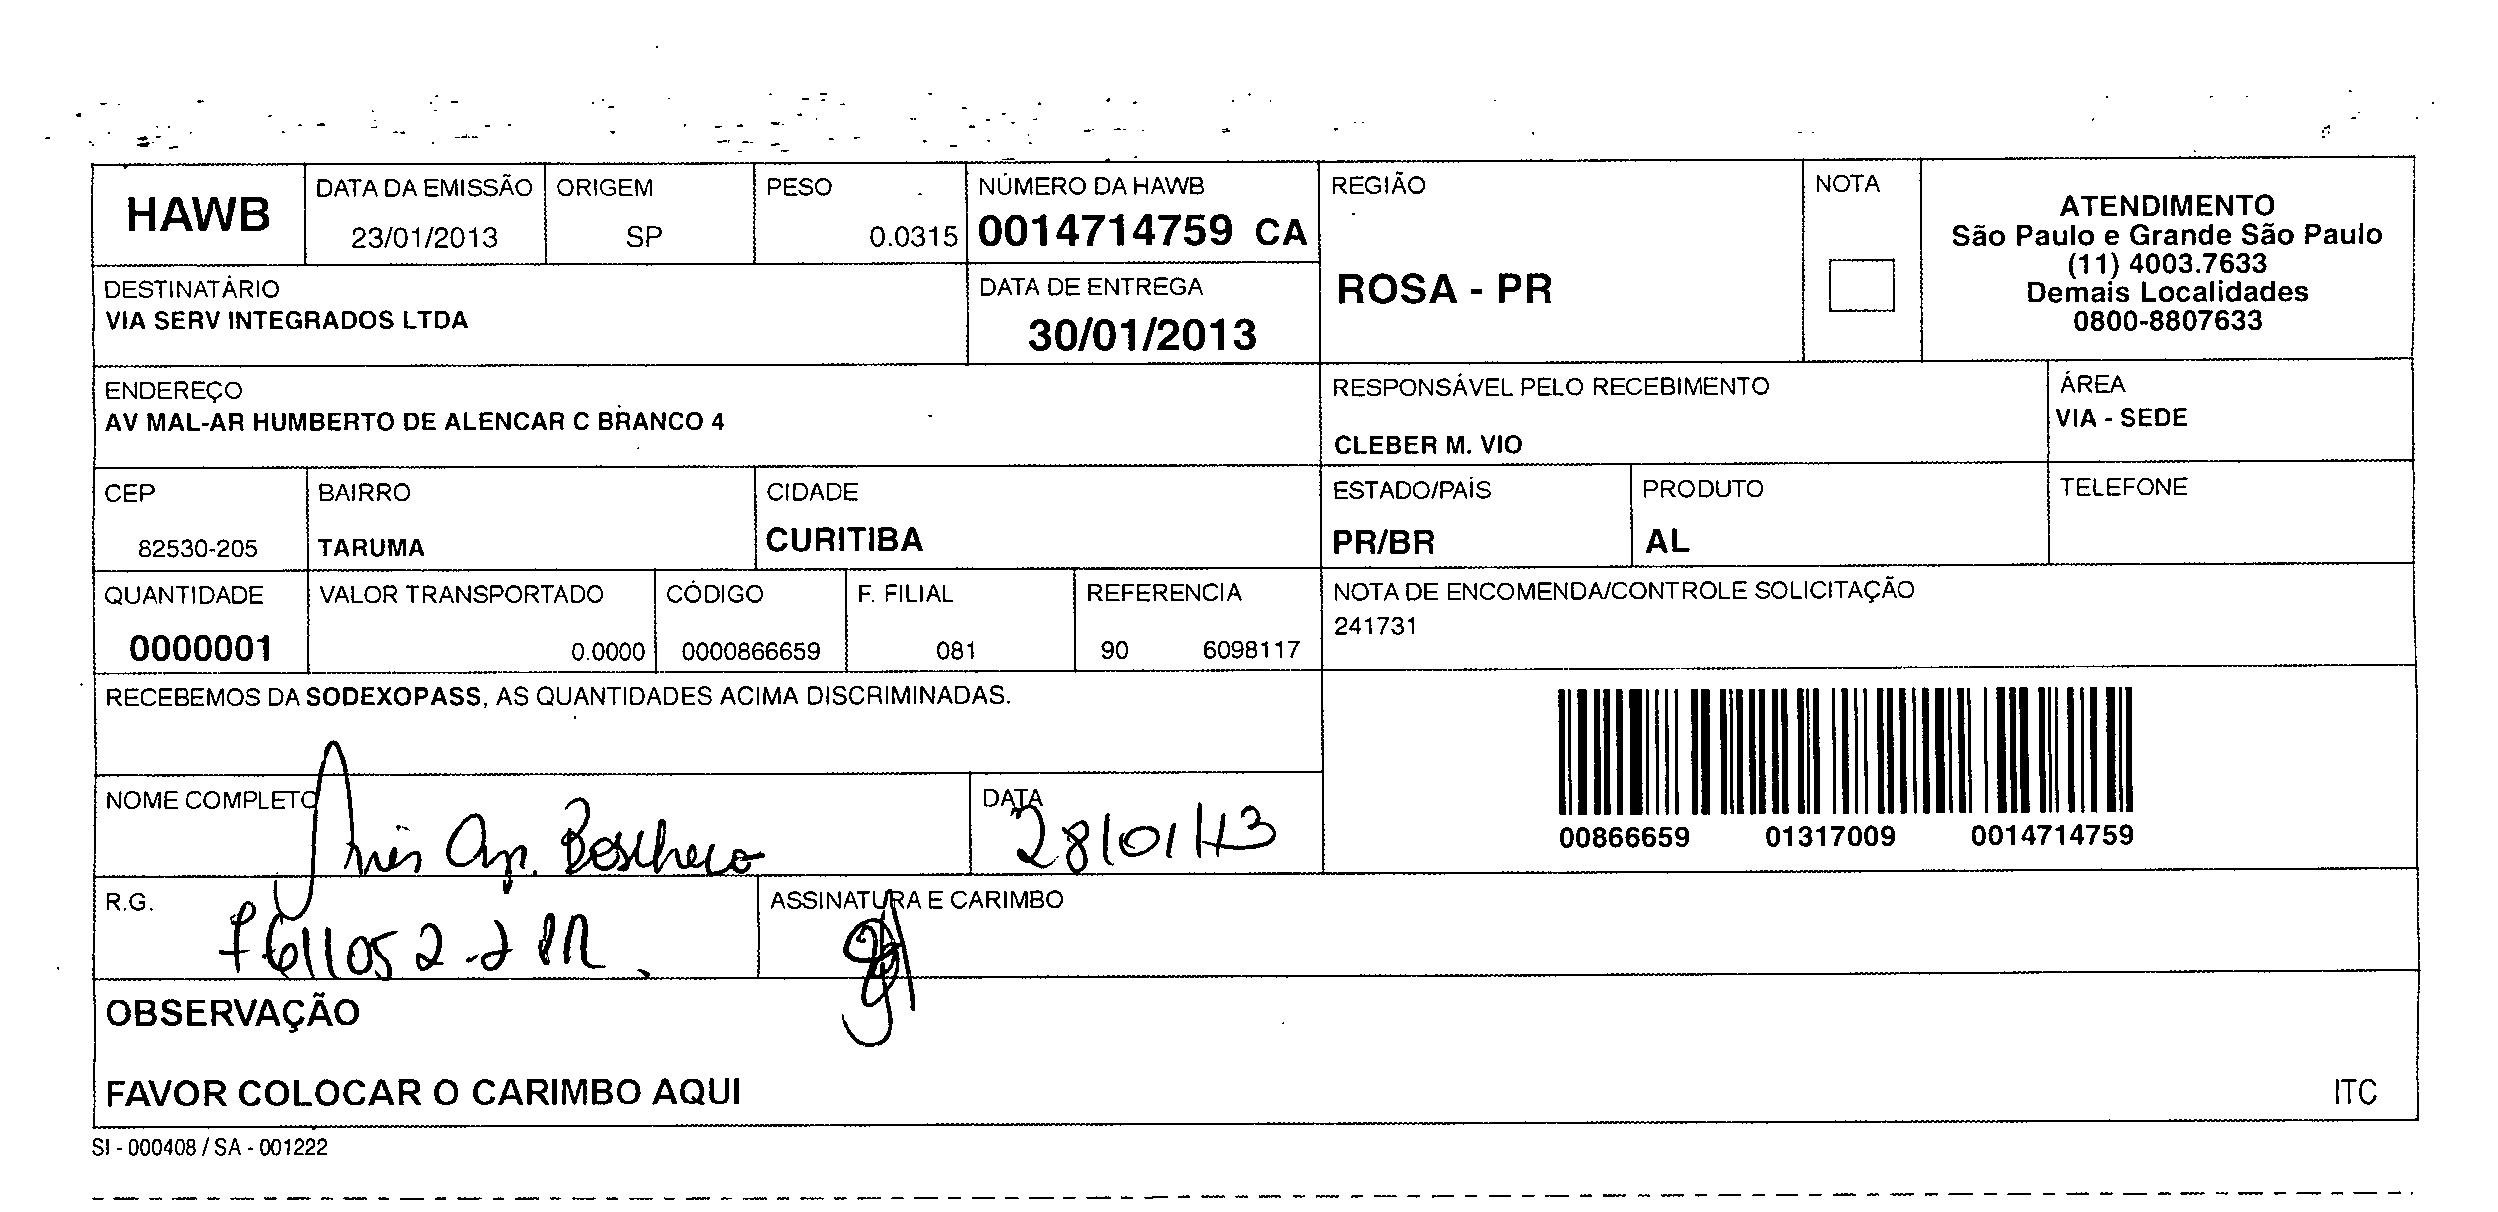 HAWB
DATA DA EMISSÃO
23/01/2013
ORIGEM
SP
PESO
0.0315
NÚMERO DA HAWB
0014714759 CA
REGIÃO
ROSA - PR
NOTA
ATENDIMENTO
São Paulo e Grande São Paulo
(11) 4003.7633
Demais Localidades
0800-8807633
DESTINATÁRIO
VIA SERV INTEGRADOS LTDA
DATA DE ENTREGA
30/01/2013
ENDEREÇO
AV MAL-AR HUMBERTO DE ALENCAR C BRANCO 4
RESPONSÁVEL PELO RECEBIMENTO
CLEBER M. VIO
ÁREA
VIA - SEDE
CEP
82530-205
BAIRRO
TARUMA
CIDADE
CURITIBA
ESTADO/PAÍS
PR/BR
PRODUTO
AL
TELEFONE
QUANTIDADE
0000001
VALOR TRANSPORTADO
0.0000
CÓDIGO
0000866659
F. FILIAL
081
REFERENCIA
90 6098117
NOTA DE ENCOMENDA/CONTROLE SOLICITAÇÃO
241731
RECEBEMOS DA SODEXOPASS, AS QUANTIDADES ACIMA DISCRIMINADAS.
00866659 01317009 0014714759
NOME COMPLETO
Inês Ap.
DATA
28/01/13
R.G.
7611052-2 PR.
ASSINATURA E CARIMBO
OBSERVAÇÃO
FAVOR COLOCAR O CARIMBO AQUI
ITC
SI - 000408 / SA - 001222